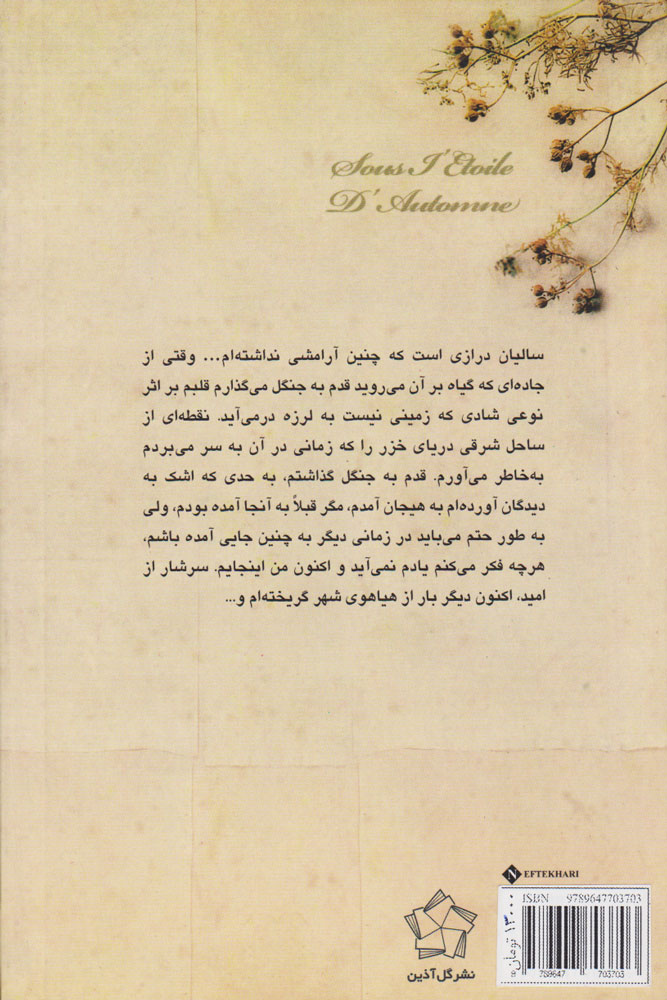 Sous I'Etoile
D'Automne
سالیان درازی است که چنین آرامشی نداشته‌ام... وقتی از
جاده‌ای که گیاه بر آن می‌روید قدم به جنگل می‌گذارم قلبم بر اثر
نوعی شادی که زمینی نیست به لرزه درمی‌آید. نقطه‌ای از
ساحل شرقی دریای خزر را که زمانی در آن به سر می‌بردم
به‌خاطر می‌آورم. قدم به جنگل گذاشتم، به حدی که اشک به
دیدگان آورده‌ام به هیجان آمدم، مگر قبلاً به آنجا آمده بودم، ولی
به طور حتم می‌باید در زمانی دیگر به چنین جایی آمده باشم،
هرچه فکر می‌کنم یادم نمی‌آید و اکنون من اینجایم. سرشار از
امید، اکنون دیگر بار از هیاهوی شهر گریخته‌ام و...
N EFTEKHARI
ISBN 9789647703703
789647 703703
۱۳۰۰۰ تومان
نشر گل‌آذین